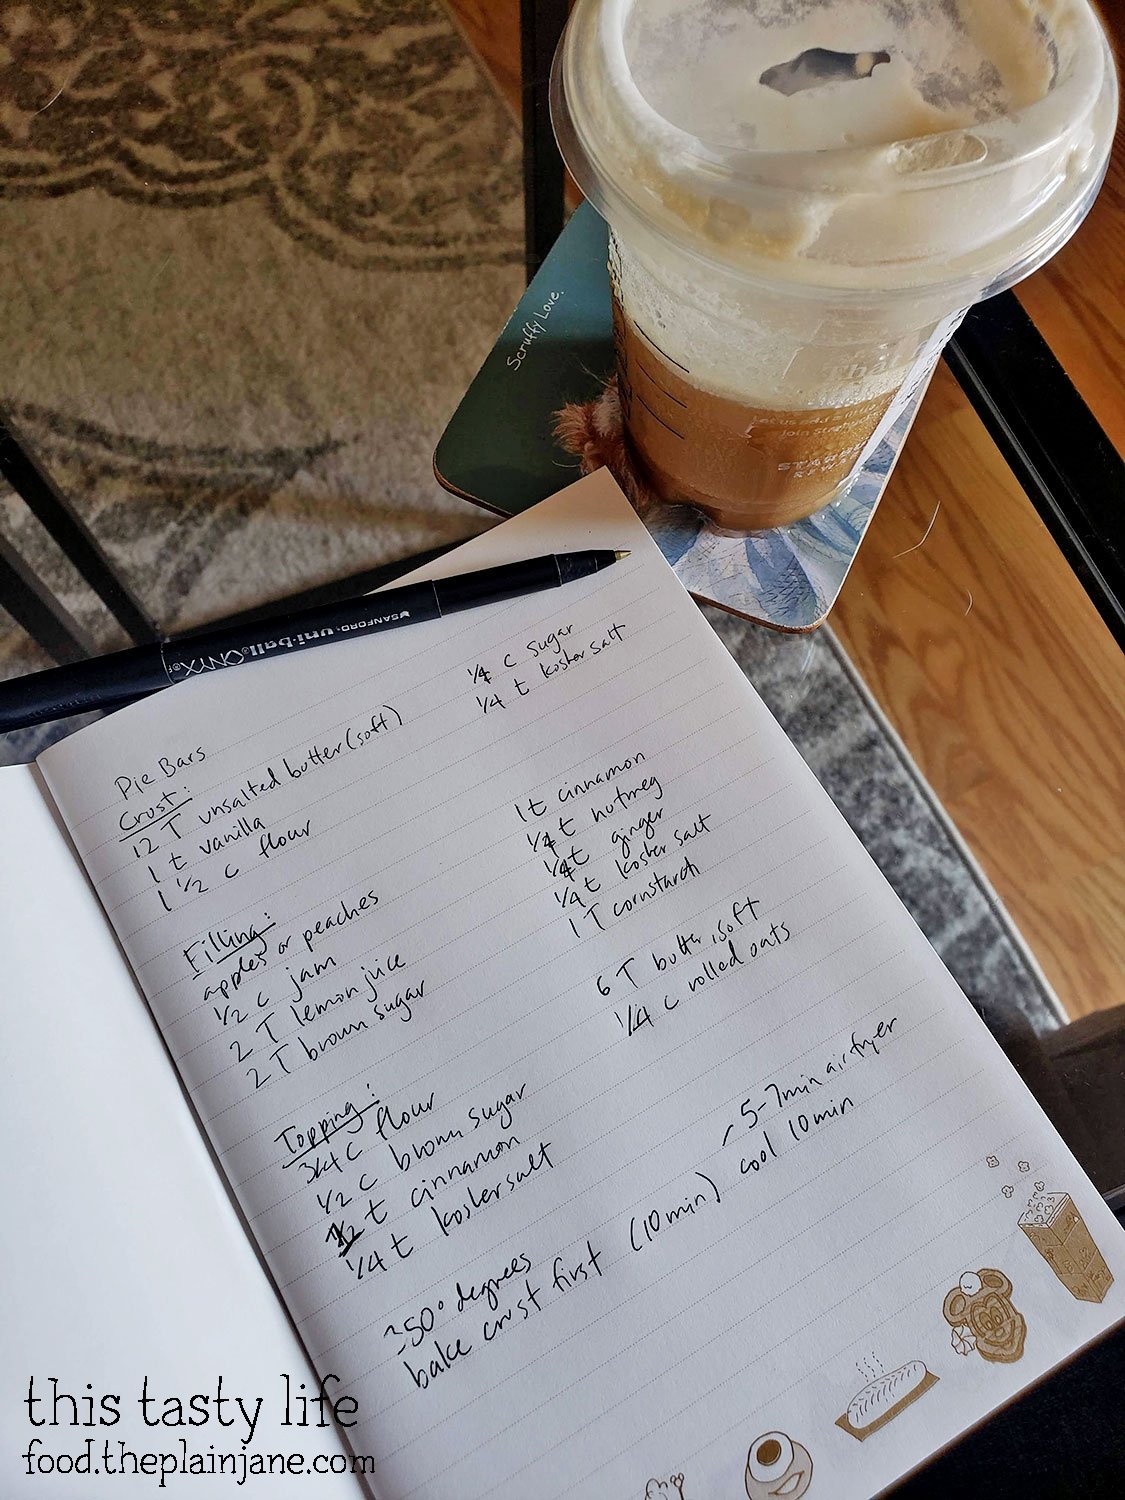 Scruffy Love.
SANFORD. uni-ball ONYX
Pie Bars
Crust:
12 T unsalted butter (soft)
1 t vanilla
1 1/2 c flour
1/4 c sugar
1/4 t kosher salt
Filling:
apples or peaches
1/2 c jam
2 T lemon juice
2 T brown sugar
1 t cinnamon
1/4 t nutmeg
1/4 t ginger
1/4 t kosher salt
1 T cornstarch
Topping:
3/4 c flour
1/2 c brown sugar
1/2 t cinnamon
1/4 t kosher salt
6 T butter, soft
1/4 c rolled oats
350° degrees
bake crust first (10 min) - 5-7 min air fryer
cool 10 min
this tasty life
food.theplainjane.com